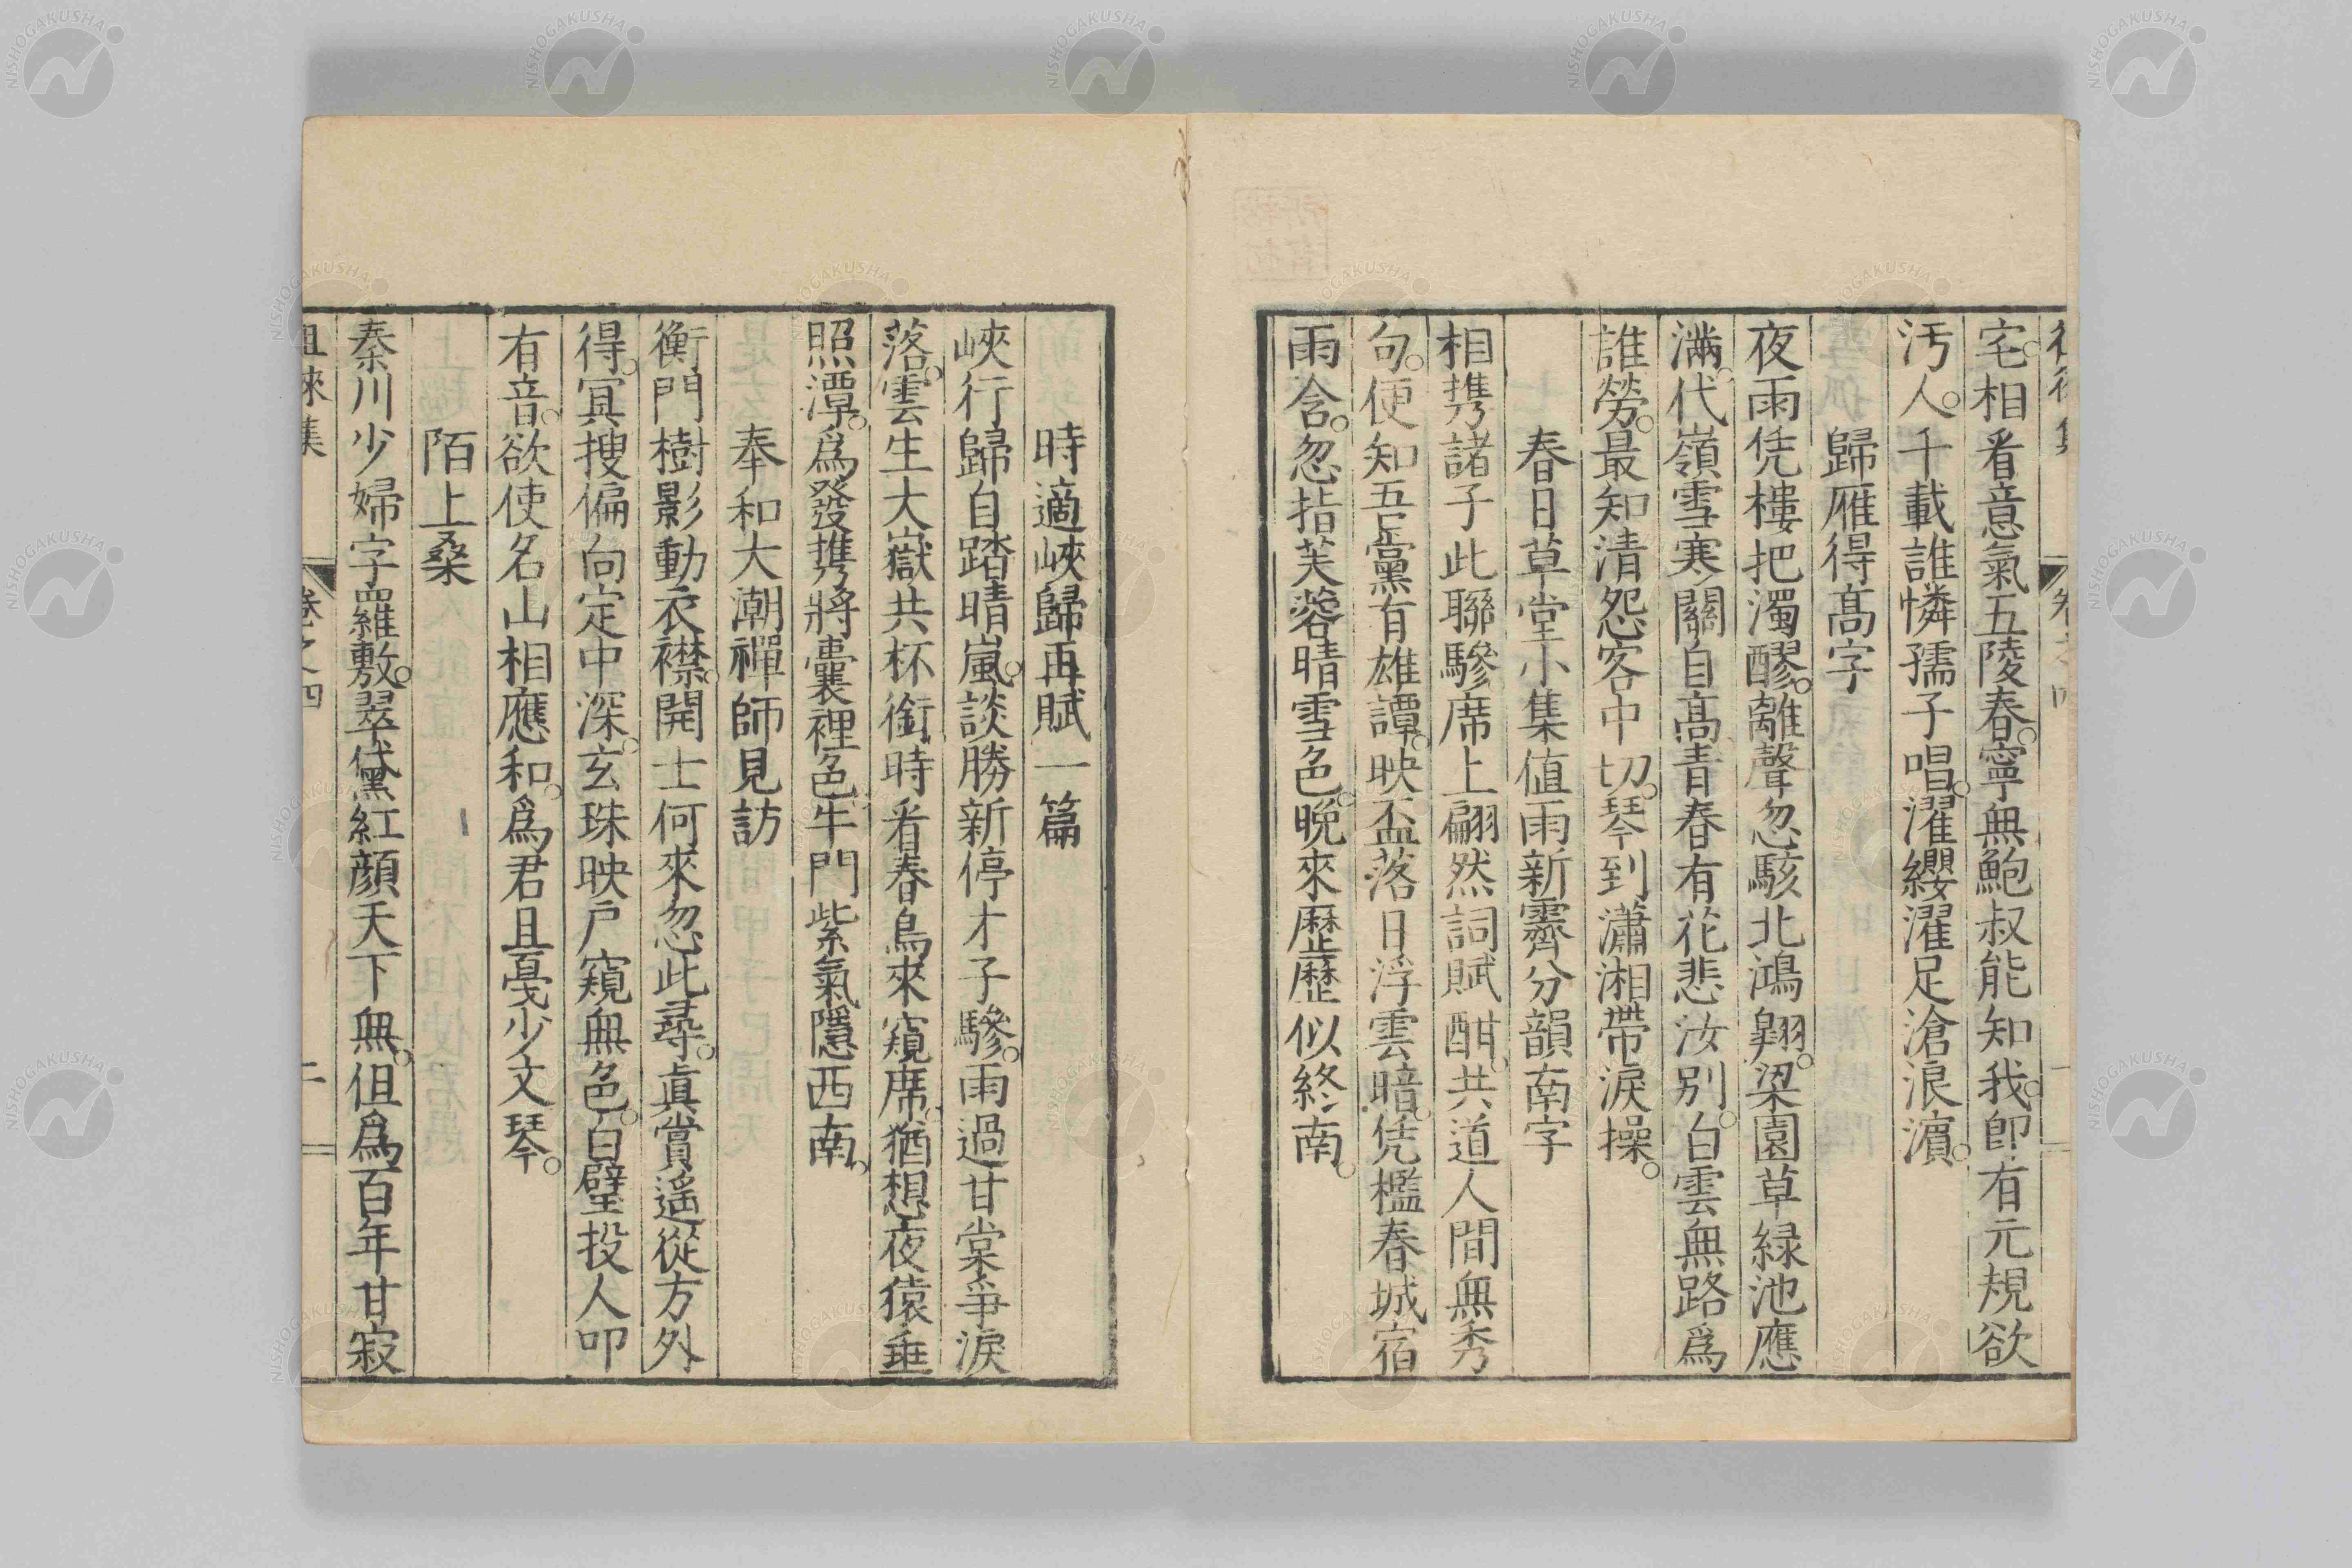 宅相看意氣五陵春寧無鮑叔能知我卽有元規欲
汚人千載誰憐孺子唱濯纓濯足滄浪濵
歸雁得髙字
夜雨凭樓把濁醪離聲忽駭北鴻翺梁園草緑池應
滿代嶺雪寒關自髙青春有花悲汝別白雲無路爲
誰勞最知清怨客中切琴到瀟湘帶淚操
春日草堂小集値雨新霽分韻南字
相携諸子此聯驂席上翩然詞賦酣共道人間無秀
句便知吾黨有雄譚映盃落日浮雲暗凭檻春城宿
雨含忽指芙蓉晴雪色晩來歴歴似終南
時適峽歸再賦一篇
峽行歸自踏晴嵐談勝新停才子驂雨過甘棠爭淚
落雲生大嶽共杯銜時看春鳥來窺席猶想夜猿垂
照潭爲發携將囊裡色牛門紫氣隱西南
奉和大潮禪師見訪
衡門樹影動衣襟開士何來忽此尋眞賞遙從方外
得冥搜偏向定中深玄珠映戸窺無色白璧投人叩
有音欲使名山相應和爲君且戞少文琴
陌上桑
秦川少婦字羅敷翠黛紅顔天下無但爲百年甘寂
徂徠集 卷之四 二
NISHOGAKUSHA